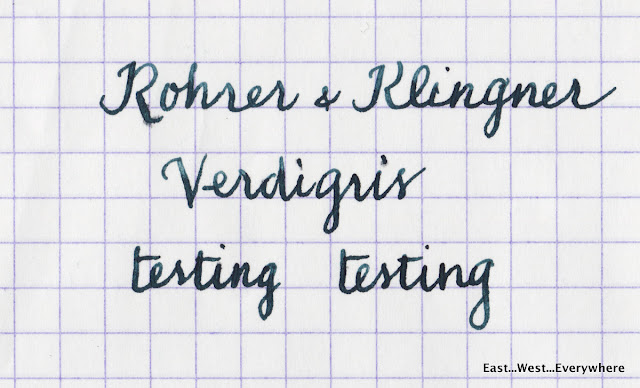 Rohrer & Klingner
Verdigris
testing testing
East...West...Everywhere